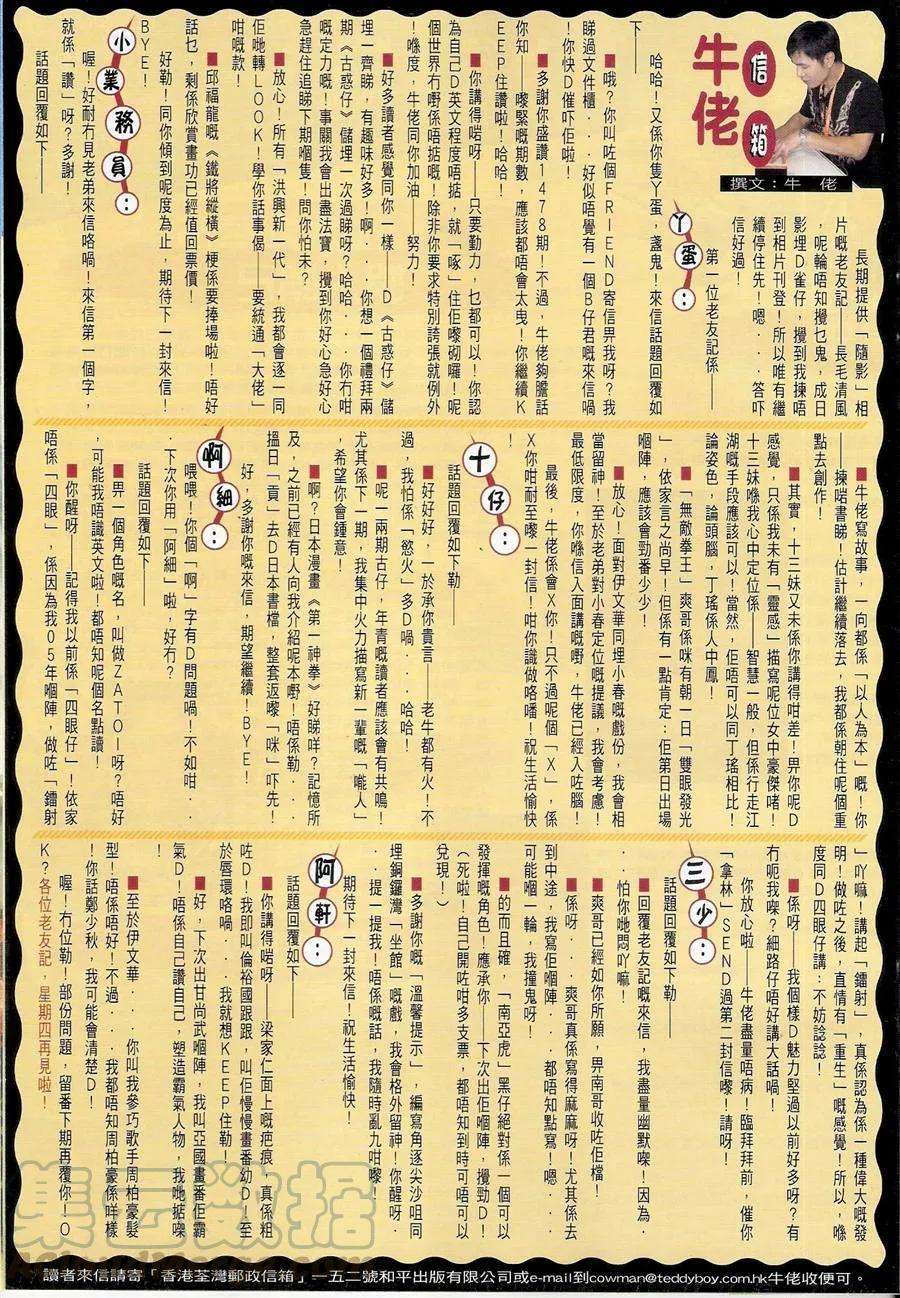 牛佬
信箱
撰文：牛　佬
長期提供「隨影」相
片嘅老友記——長毛清風
，呢輪唔知攪乜鬼，成日
影埋D雀仔，攪到我揀唔
到相片刊登！所以唯有繼
續停住先！嗯．．．答吓
信好過！
第一位老友記係——
丫蛋：
哈哈！又係你隻丫蛋，盞鬼！來信話題回覆如
下——
■哦？你叫咗個FRIEND寄信畀我呀？我
睇過文件櫃．．．好似唔覺有一個B仔君嘅來信喎
！你快D催吓佢啦！
■多謝你盛讚1478期！不過，牛佬夠膽話
你知——嚟緊嘅期數，應該都唔會太曳！你繼續K
EEP住讚啦！哈哈！
■你講得啱呀——只要勤力，乜都可以！你認
為自己D英文程度唔掂，就「啄」住佢嚟砌囉！呢
個世界冇嘢係唔掂嘅！除非你要求特別誇張就例外
！喺度，牛佬同你加油——努力！
■好多讀者感覺同你一樣——D《古惑仔》儲
埋一齊睇，有趣味好多！啊．．．你想一個禮拜兩
期《古惑仔》儲埋一次過睇呀？哈哈．．．你冇咁
嘅定力嘅！事關我會出盡法寶，攪到你好心急好心
急趕住追睇下期嗰隻！問你怕未？
■放心！所有「洪興新一代」，我都會逐一同
佢哋轉LOOK！學你話事偈——要統通「大佬」
咁嘅款！
■邱福龍嘅《鐵將縱橫》梗係要捧場啦！唔好
話乜，剩係欣賞畫功已經值回票價！
好勒！同你傾到呢度為止，期待下一封來信！
BYE！
小業務員：
喔！好耐冇見老弟來信咯喎！來信第一個字，
就係「讚」呀？多謝！
話題回覆如下——
■牛佬寫故事，一向都係「以人為本」嘅！你
——揀啱書睇！估計繼續落去，我都係朝住呢個重
點去創作！
■其實，十三妹又未係你講得咁差！畀你呢D
感覺，只係我未有「靈感」描寫呢位女中豪傑啫！
十三妹喺我心中定位係——智慧一般，但係行走江
湖嘅手段應該可以！當然，佢唔可以同丁瑤相比！
論姿色，論頭腦，丁瑤係人中鳳！
■「無敵拳王」爽哥係咪有朝一日「雙眼發光
」，依家言之尚早！但係有一點肯定：佢第日出場
嗰陣，應該會勁番少少！
■放心！面對伊文華同埋小春嘅戲份，我會相
當留神！至於老弟對小春定位嘅提議，我會考慮！
最低限度，你喺信入面講嘅嘢，牛佬已經入咗腦！
最後，牛佬係會X你！只不過呢個「X」，係
X你咁耐至嚟一封信！咁你識做咯噃！祝生活愉快
！
十仔：
話題回覆如下勒——
■好好好，一於承你貴言——老牛都有火！不
過，我怕係「慾火」多D喎．．．哈哈！
■呢一兩期古仔，年青嘅讀者應該會有共鳴！
尤其係下一期，我集中火力描寫新一輩嘅「嚨人」
，希望你會鍾意！
■啊？日本漫畫《第一神拳》好睇咩？記憶所
及，之前已經有人向我介紹呢本嘢！唔係勒．．．
搵日「貢」去D日本書檔，整套返嚟「咪」吓先！
好，多謝你嘅來信，期望繼續！BYE！
啊細：
喂喂！你個「啊」字有D問題喎！不如咁．．
．下次你用「阿細」啦，好冇？
話題回覆如下——
■畀一個角色嘅名，叫做ZATOI呀？唔好
，可能我唔識英文啦！都唔知呢個名點讀！
■你醒呀——記得我以前係「四眼仔」！依家
唔係「四眼」，係因為我05年嗰陣，做咗「鐳射
」吖嘛！講起「鐳射」，真係認為係一種偉大嘅發
明！做咗之後，直情有「重生」嘅感覺！所以，喺
度同D四眼仔講：不妨諗諗！
■係呀——我個樣D魅力堅過以前好多呀？有
冇呃我㗎？細路仔唔好講大話喎！
你放心啦——牛佬盡量唔病！臨拜拜前，催你
「拿林」SEND過第二封信嚟！請呀！
三少：
話題回覆如下勒——
■回覆老友記嘅來信，我盡量幽默㗎！因為．
．．怕你哋悶吖嘛！
■爽哥已經如你所願，畀南哥收咗佢檔！
■係呀．．．爽哥真係寫得麻麻呀！尤其係去
到中途，我寫佢嗰陣．．．都唔知點寫！嗯．．．
可能嗰一輪，我撞鬼呀！
■的而且確，「南亞虎」黑仔絕對係一個可以
發揮嘅角色！應承你——下次出佢嗰陣，攪勁D！
（死啦！自己開咗咁多支票，都唔知到時可唔可以
兌現！）
■多謝你嘅「溫馨提示」，編寫角逐尖沙咀同
埋銅鑼灣「坐館」嘅戲，我會格外留神！你醒呀．
．．提一提我！唔係嘅話，我隨時亂九咁嚟！
期待下一封來信！祝生活愉快！
阿軒：
話題回覆如下——
■你講得啱呀——梁家仁面上嘅疤痕，真係粗
咗D！我即叫倫裕國跟跟，叫佢慢慢畫番幼D！至
於唇環咯喎．．．我就想KEEP住勒！
■好，下次出甘尚武嗰陣，我叫亞國畫番佢霸
氣D！唔係自己讚自己，塑造霸氣人物，我哋掂㗎
！
■至於伊文華．．．你叫我參巧歌手周柏豪髮
型！唔係唔好！不過．．．我都唔知周柏豪係咩樣
！你話鄭少秋，我可能會清楚D！
喔！冇位勒！部份問題，留番下期再覆你！O
K？各位老友記，星期四再見啦！
讀者來信請寄「香港荃灣郵政信箱」一五二號和平出版有限公司或e-mail到cowman@teddyboy.com.hk牛佬收便可。
集云数据